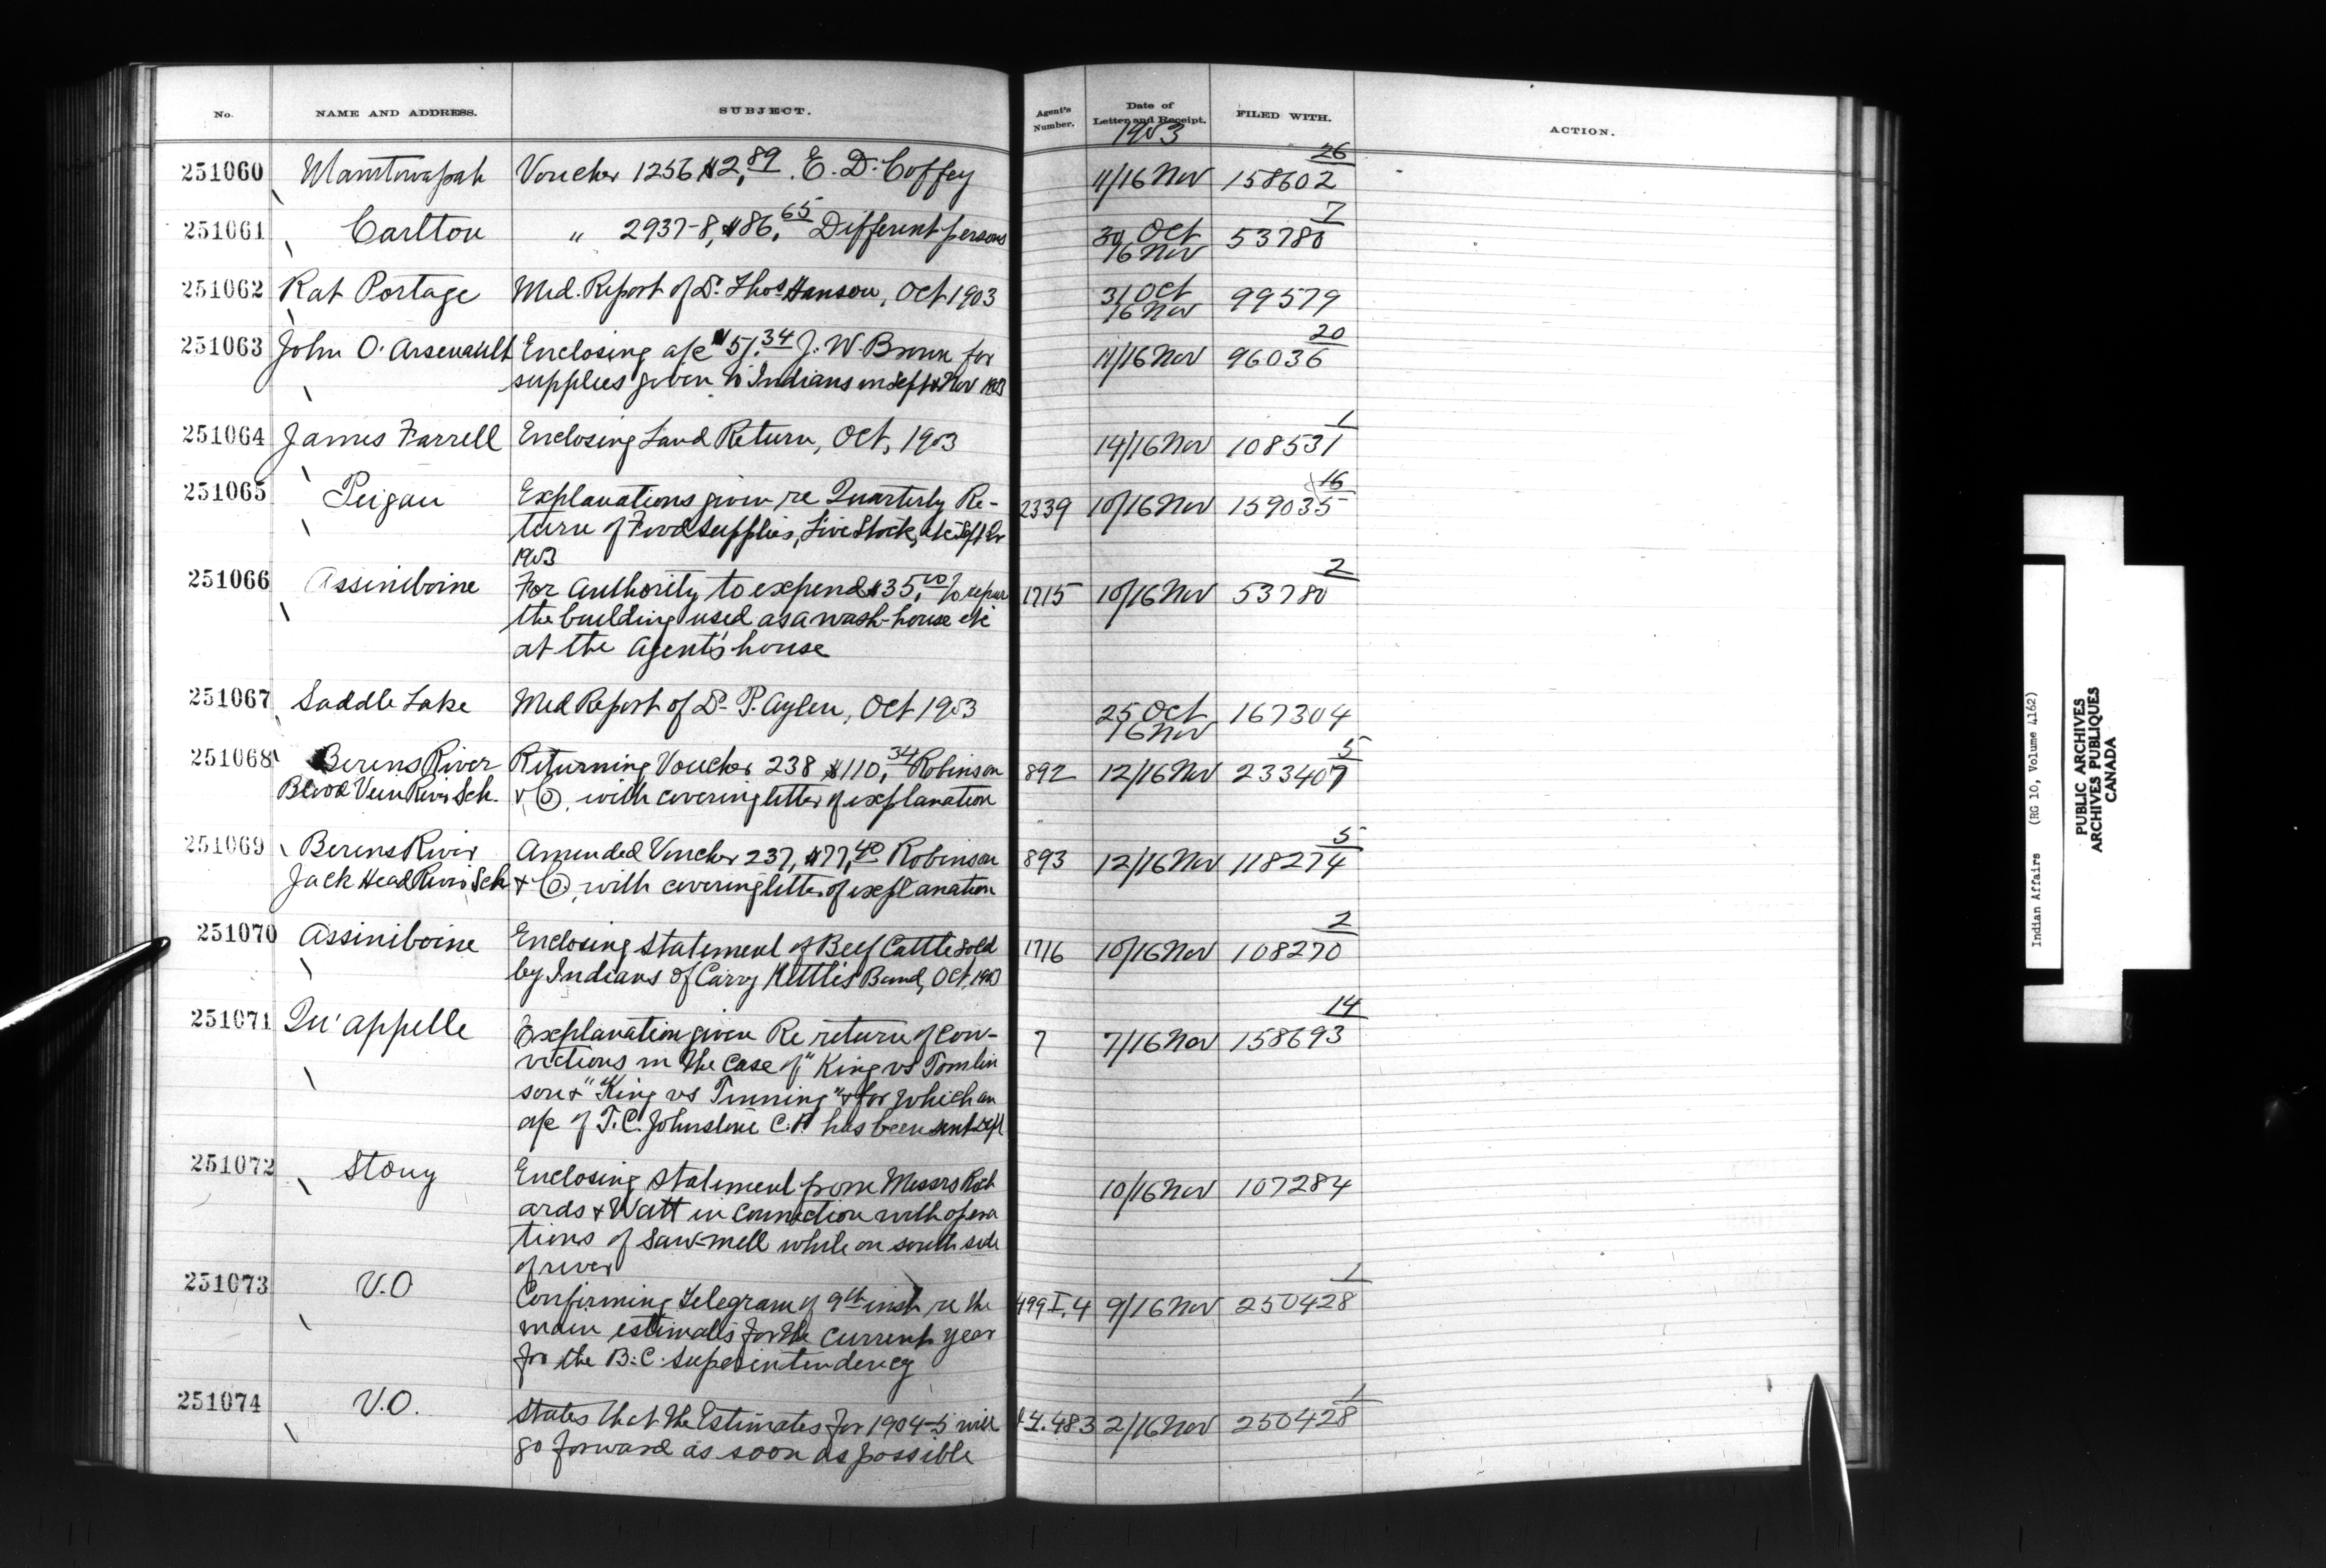 No. NAME AND ADDRESS. SUBJECT. Agent's Number. Date of Letter and Receipt. FILED WITH. ACTION.
1903
26
251060 Manitowapah Voucher 1256 $2,89. E. D. Coffey 11/16 Nov 158602
7
251061 Carlton " 2937-8, $86,65 Different persons 30 Oct 53780
16 Nov
251062 Rat Portage Med. Report of Dr. Thos Hanson, Oct 1903 31 Oct 99579
16 Nov
20
251063 John O. Arsenault Enclosing a/c $51.34 J. W. Brown for 11/16 Nov 96036
supplies given to Indians in Sept & Nov 1903
1
251064 James Farrell Enclosing Land Return, Oct, 1903 14/16 Nov 108531
16
251065 Peigan Explanations given re Quarterly Re- 2339 10/16 Nov 159035
turn of Food supplies, Live Stock, etc Sept Qr
1903
2
251066 Assiniboine For Authority to expend $35,00 to repair 1715 10/16 Nov 53780
the building used as a wash-house etc
at the Agent's house
251067 Saddle Lake Med Report of Dr P. Aylen, Oct 1903 25 Oct 167304
16 Nov
5
251068 Berens River Returning Voucher 238 $110,34 Robinson 892 12/16 Nov 233407
Blood Vein River Sch. & Co, with covering letter of explanation
5
251069 Berens River Amended Voucher 237, $77,40 Robinson 893 12/16 Nov 118274
Jack Head River Sch & Co, with covering letter of explanation
2
251070 Assiniboine Enclosing statement of Beef Cattle sold 1716 10/16 Nov 108270
by Indians of Carry Kettle's Band, Oct, 1903
14
251071 Qu'Appelle Explanation given Re return of con- 7 7/16 Nov 158693
victions in the case of "King vs Tomlin
son & "King vs Tinning" & for which an
a/c of T. C. Johnstone C. P. has been sent Dept
251072 Stony Enclosing statement from Messrs Rich 10/16 Nov 107284
ards & Watt in connection with opera
tions of Saw-mill while on south side
of river
1
251073 V.O Confirming telegram of 9th inst re the 499 I.4 9/16 Nov 250428
main estimates for the current year
for the B.C. Superintendency
1
251074 V.O. States that the Estimates for 1904-5 will I.4.483 2/16 Nov 250428
go forward as soon as possible
Indian Affairs (RG 10, Volume 4162)
PUBLIC ARCHIVES
ARCHIVES PUBLIQUES
CANADA